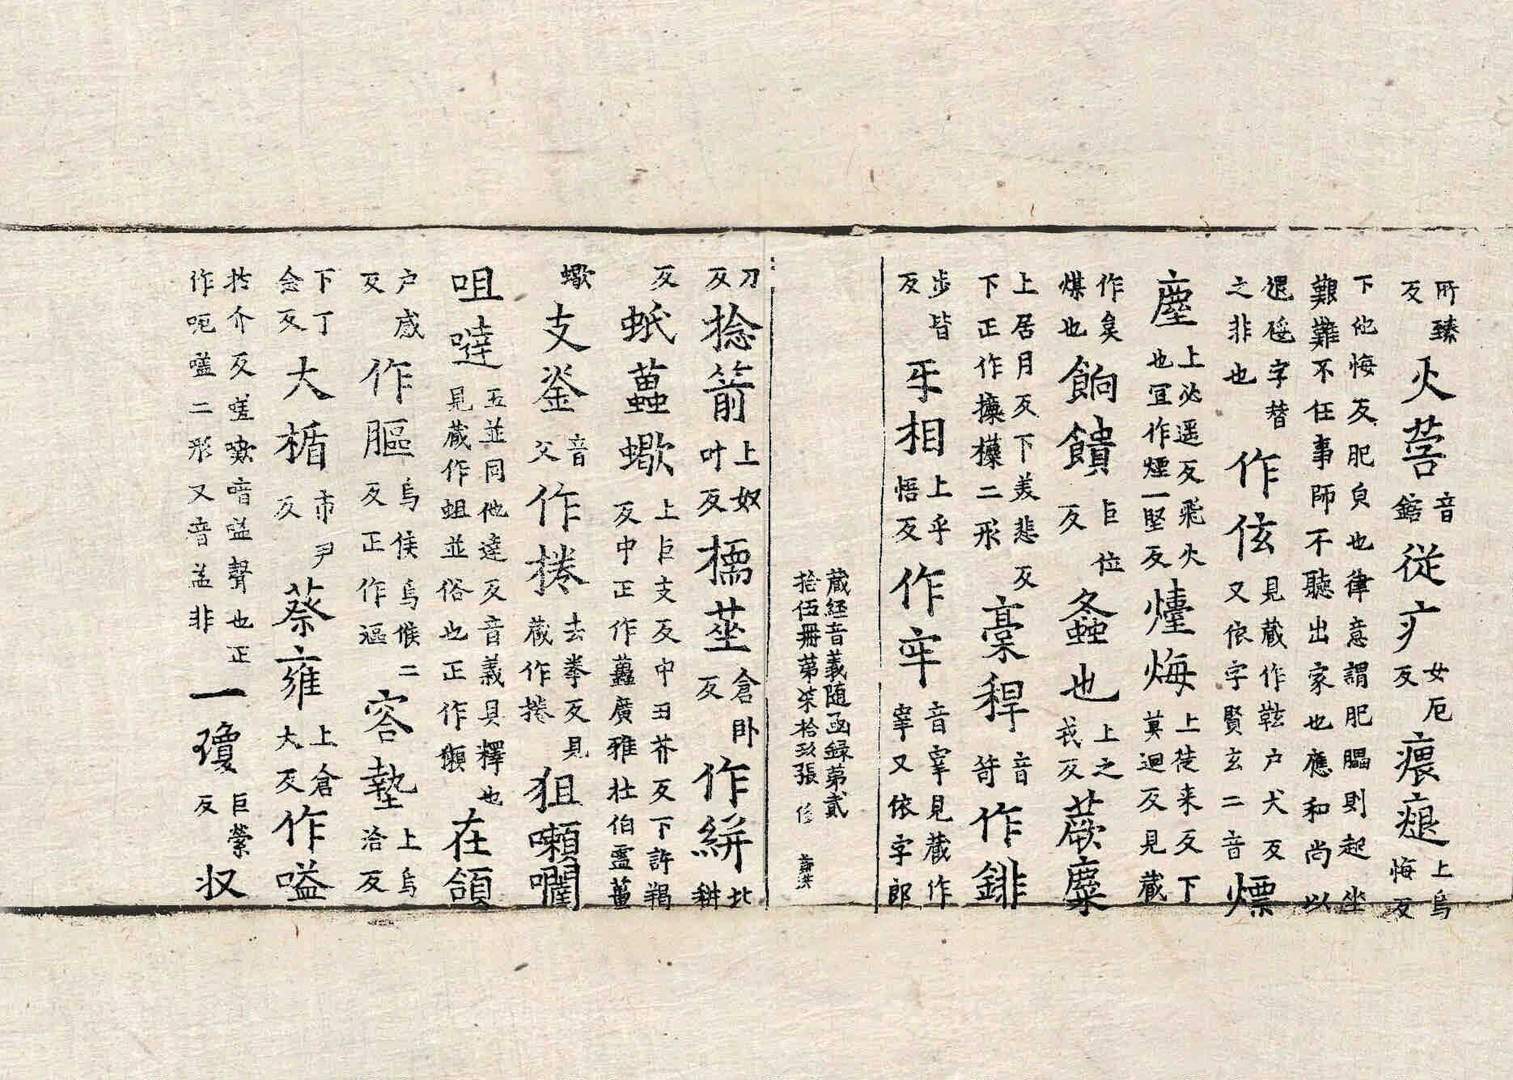 所臻反火音錯從疒女厄反上烏悔反
下他悔反肥皃也律意謂肥䐿則起坐艱難不任事師不聽出家也應和尚以
還硙字替之非也作伭見藏作䩙户犬反又依字賢玄二音熛
塵上必遥反飛火也冝作煙一堅反㷘㷯上徒来反下莫迴反見藏
作炱煤也餉饋巨位反螽也上之戎反蕨麋
上居月反下美悲反下正作攗二形稾稈音笴作
步皆反互相上乎悟反作牢音宰見藏作宰又依字郎
藏經音義随函録第貳
拾伍冊第柒拾玖張
刀反捻箭上奴叶反擩莝倉卧反作絣北耕
反蚔蠆蠍上巨支反中丑芥反下許羯反中正作蠆廣雅杜伯䘍蠆
蠍支釜音父作捲去拳反見藏作捲狙㘓
咀噠五並同他達反音義具釋也見藏作蛆並俗也正作獺在頷
户感反作膒烏侯烏候二反正作漚窊墊上烏洽反
下丁念反大楯市尹反蔡雍上倉大反作嗌
扵介反嗟嗽喑嗌聲也正作呃嗌二形又音益非一瓊巨縈反収